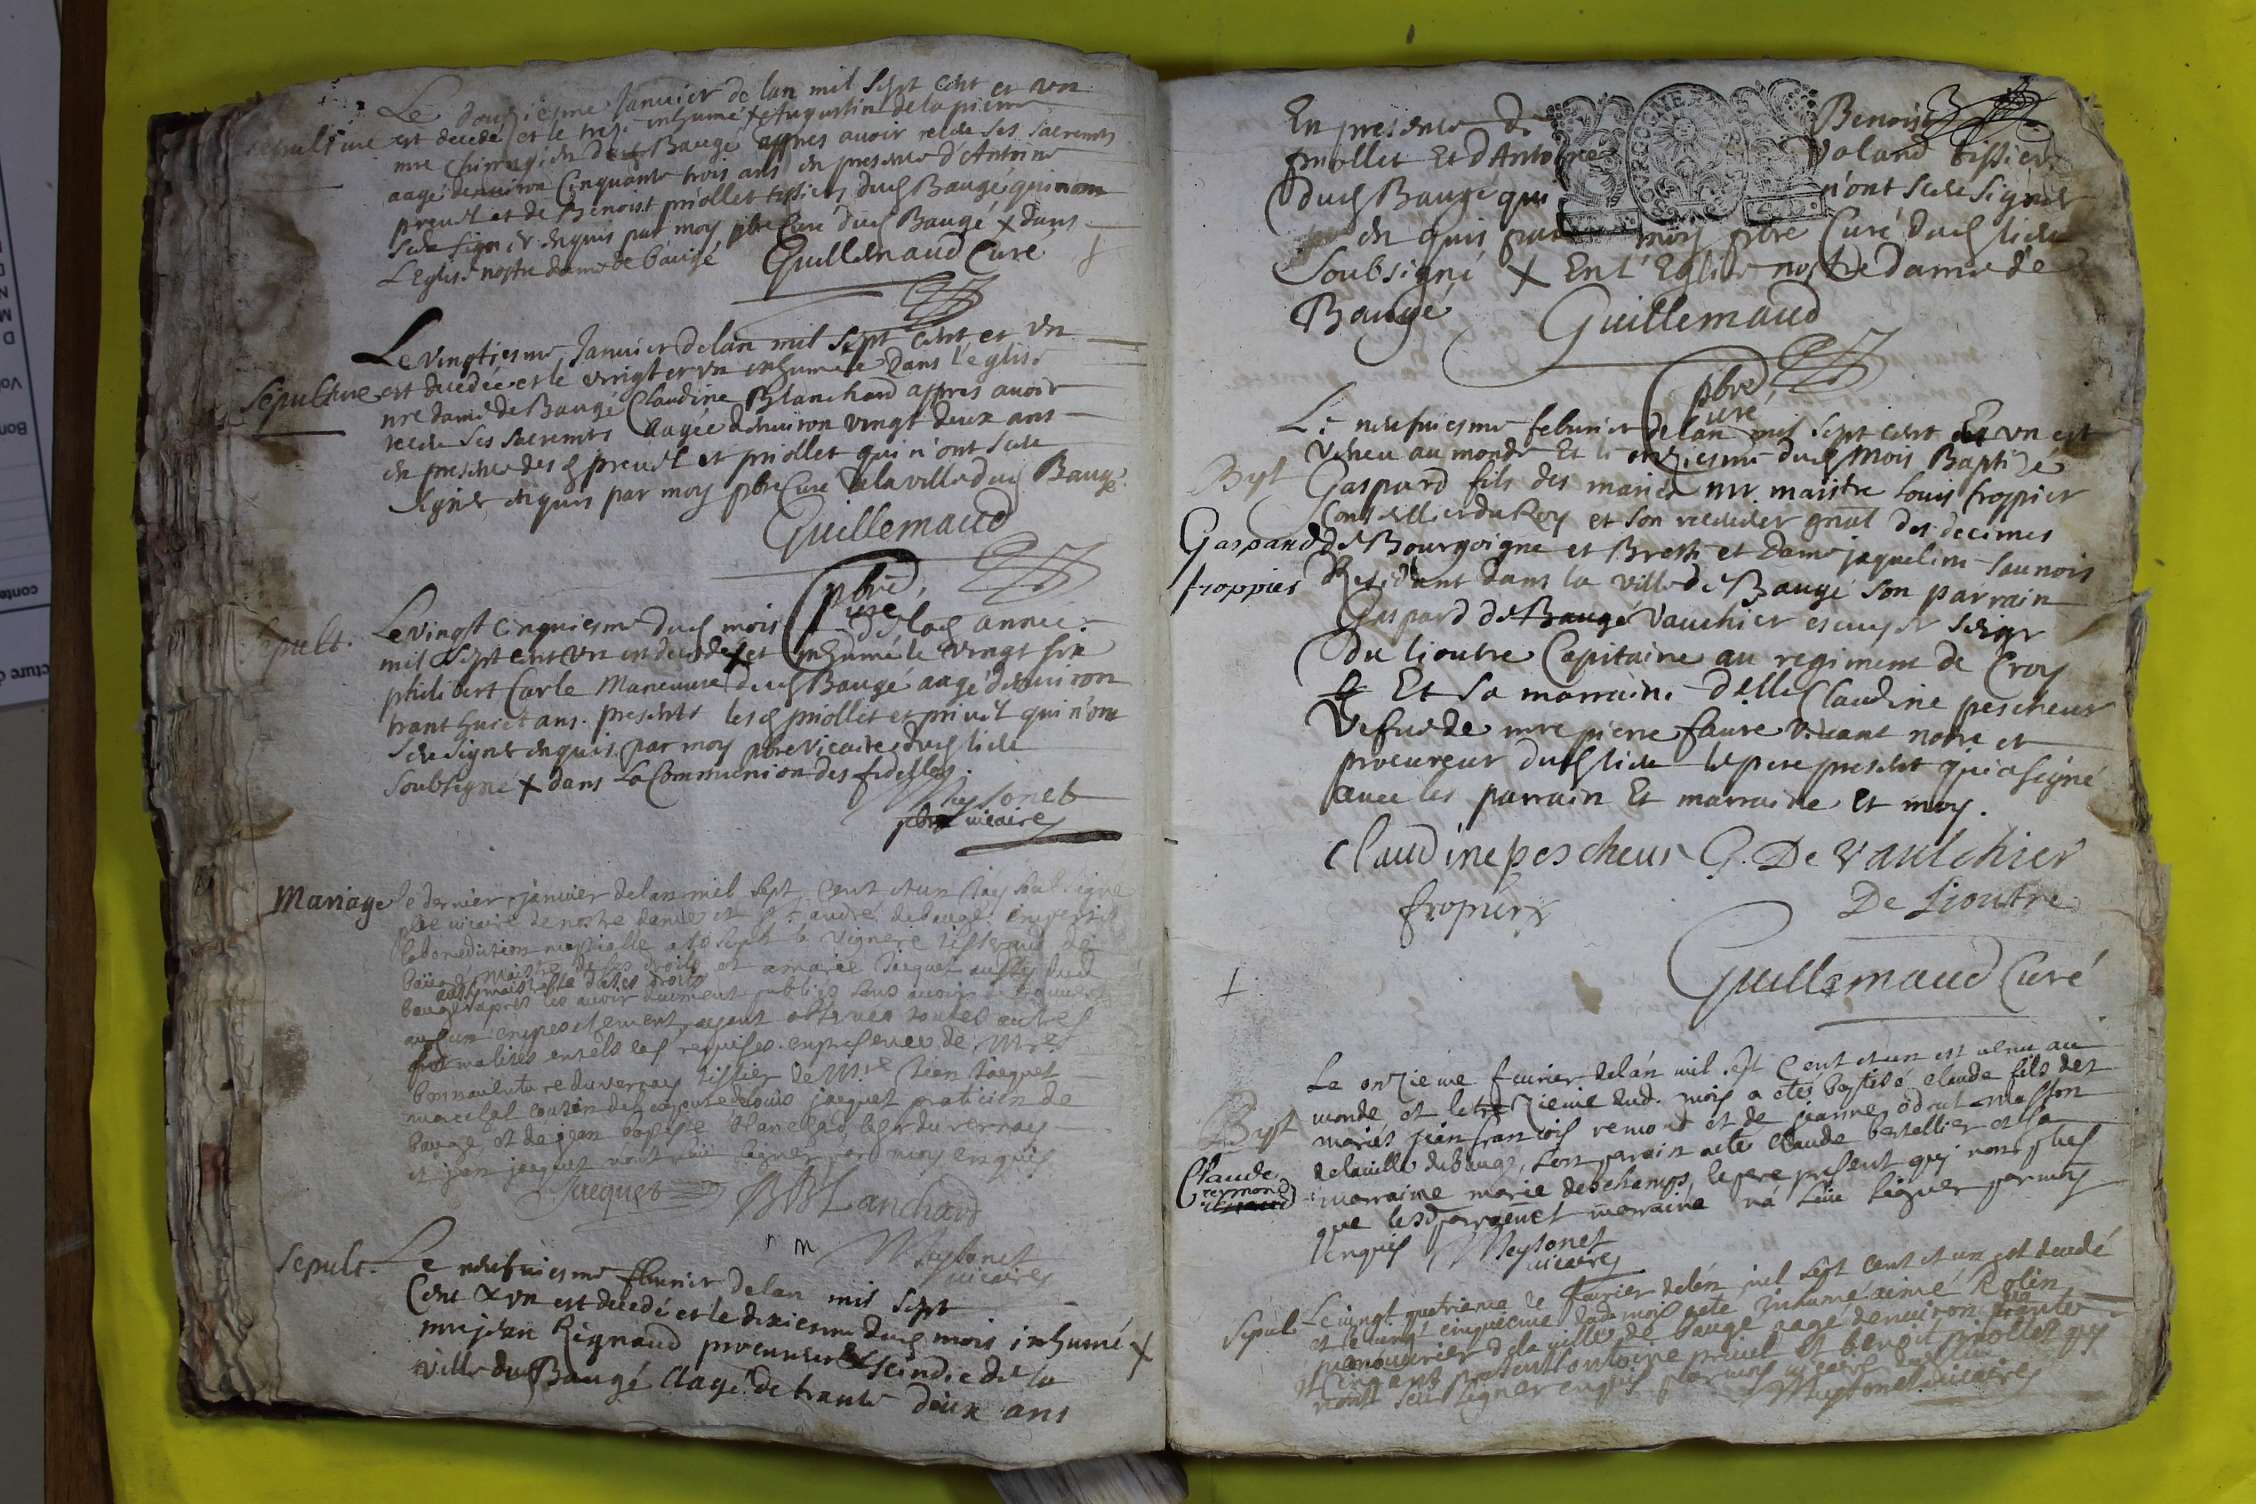 Le douziesme Janvier de lan mil sept cent et un
sepulture est decedé et le trez. inhumé + Augustin delapierre
mre Chirurgien dud Baugé appres avoir receu ses sacremts
aagé denviron Cinquante trois ans en presence d'Antoine
preuel et de Benoist priollet tissiers dud Baugé qui nont
sceu signer enquis par moy pbre Curé dud Baugé + dans
L'eglise nostre dame de baugé Guillemaud Curé
Le vingtiesme Janvier de lan mil sept cent et un
Sepulture est decedée et le vingt et un inhumée dans l'eglise
nre dame de Baugé Claudine Blanchard appres avoir
receu ses sacremts aagée denviron vingt deux ans
en presence desd preuel et priollet qui n'ont sceu
signer enquis par moy pbre Curé de la ville dud Baugé
Guillemaud
pbre
Curé
sepult. Le vingt cinquiesme dud mois de lad année
mil sept cent un est decedé + et inhumé le vingt six
philibert Carle Maneuvre dud Baugé aagé denviron
trant huict ans. presents lesd priollet et privel qui n'ont
sceu signer enquis par moy pbre vicaire dud lieu
soubsigné + dans la Communion des fidelles
Meysonet
pbre vicaire
Mariage le dernier janvier de lan mil sept cent et un j'ay soubsigné
pbre vicaire de nostre dame et st andré de baugé imparti
la benediction nuptialle a Joseph Vignere tisserand de
baugé maistre de ses droits et a marie Jacquet aussy dud
aussy maistresse de ses droits
baugé apres les avoir duement publiés sans avoir trouvé
aucun empeschement ayant observé toutes autres
formalites en tels cas requises. en presence de Mre
bonnaventure duvernay tissier de Mre Jean Jacquet
mareschal cousin de l'epouse Louis jacquet praticien de
baugé et de jean baptiste blanchard led duvernay
et jean jacquet n'ont sceu signer par moy enquis
Jacquet BBLanchard
Meysonet
vicaire
Sepult. Le neufviesme febvrier de lan mil sept
Cent & un est decedé et le dixiesme dud mois inhumé +
mre jean Rignaud procureur & scindic de la
ville dud Baugé aagé de trante deux ans
En presence de Benoist
priollet Et d'Antoine Voland tissiers
dud Baugé qui n'ont sceu signer
en quis par moy pbre Curé dud lieu
Soubsigné + En l'Eglise nostre dame de
Baugé Guillemaud
pbre
Curé
Le neufviesme febvrier de lan mil sept cent et un est
veneu au monde Et le onziesme dud mois Baptizé
Bapt Gaspard fils des mariés mr maistre Louis froppier
Conseiller du Roy et son receveur gnal des decimes
Gaspard de Bourgoigne et Bresse et dame jaqueline saunois
froppier Residant dans la ville de Baugé son parrain
Gaspard de Baugé Vauchier escuyer seigr
Du lioutre Capitaine au regiment de Croy
Et sa marraine delle Claudine pescheur
Vefve de mre pierre faure vivant notre et
procureur dud lieu le pere present qui a signé
avec les parrain Et marraine Et moy.
claudine pescheur G. De Vaulchier
fropier De Lioutre
Guillemaud Curé
Le onzieme fevrier de lan mil sept cent et un est venu au
monde et le trezieme dud. mois a eté baptisé claude fils des
Bapt mariés jean françois remond et de jeanne odout masson
de la ville de baugé, son parain a ete claude bertellier et sa
Claude
remond
marraine marie deschamps, le pere present qui nont plus
que lesd parain et marraine na sceu signer par moy
enquis Meysonet
vicaire
Sepul. Le vingt quatrieme de fevrier de lan mil sept cent et un est decedé
et le vingt cinquieme dud mois a eté inhumé aimé Rolin
manouvrier de la ville de baugé aagé denviron trante
et cinq ans presents antoine privel et benoit priollet qui
nont sceu signer enquis par moy vicaire dud lieu
Meysonet vicaire